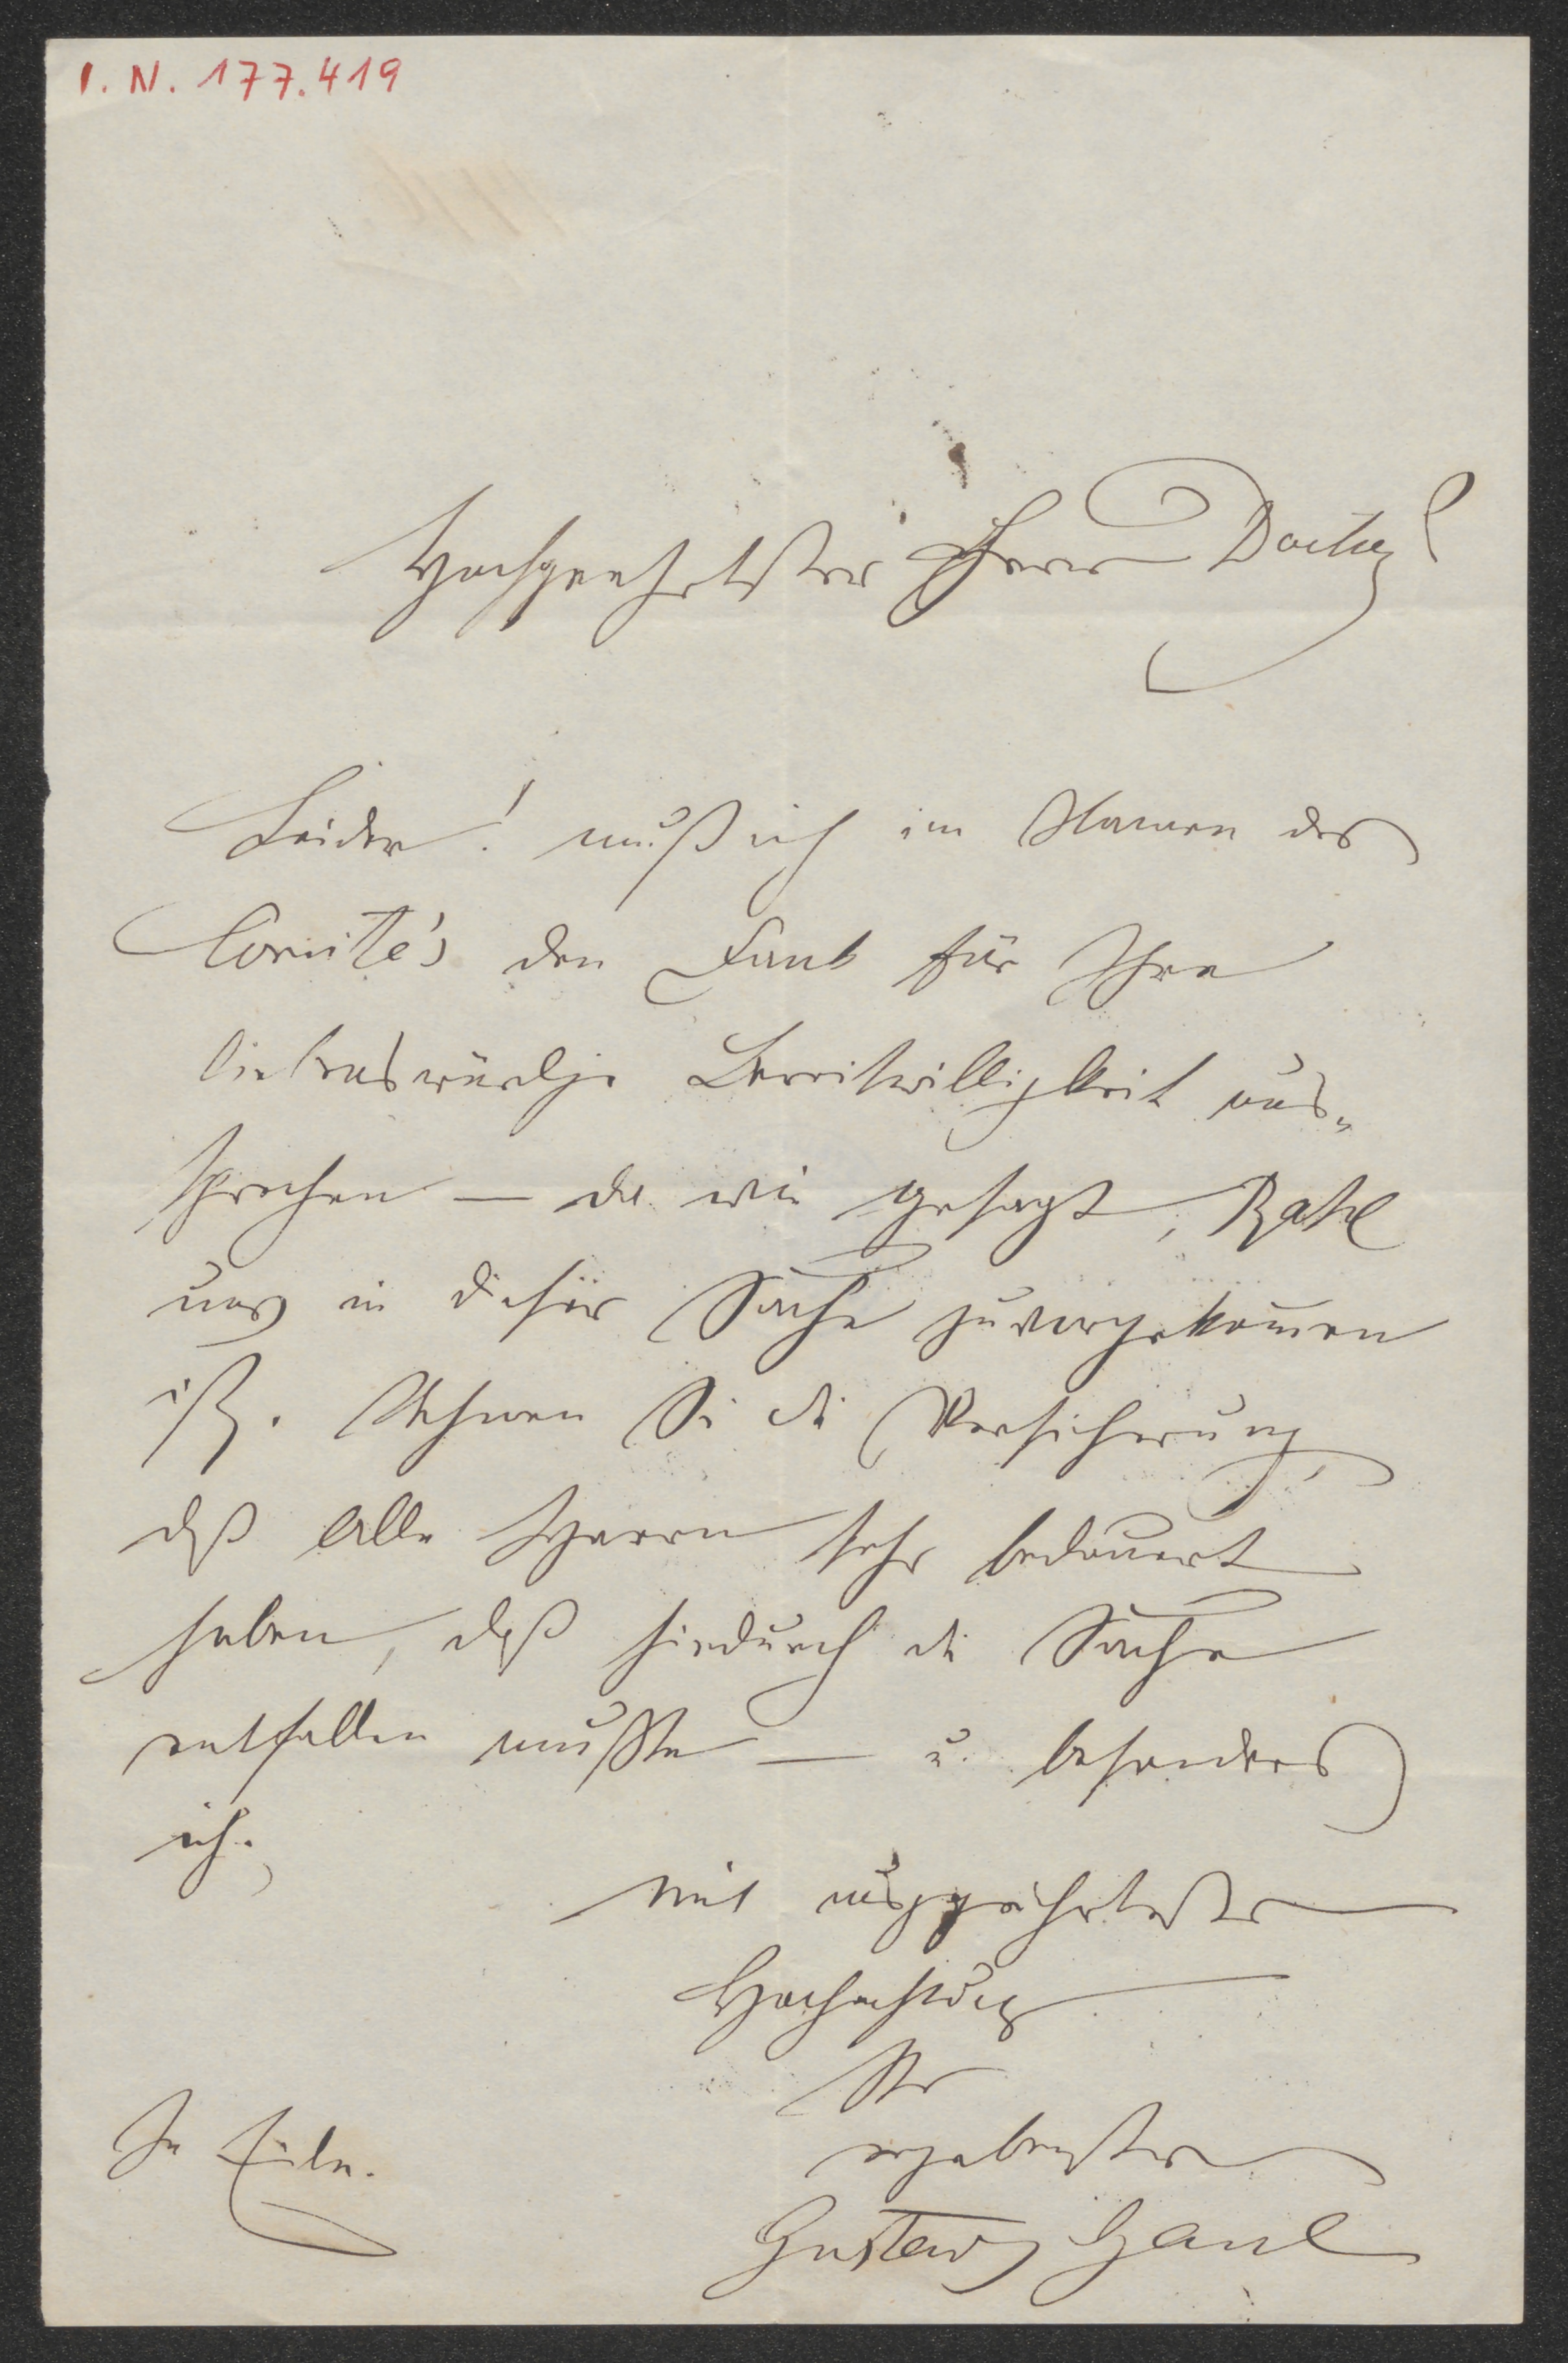 I. N. 177.419
Hochgeehrtester Herr Doctor!
Leider! muß ich im Namen des
Comité's den Dank für Ihre
liebenswürdige Bereitwilligkeit aus„
sprechen — da wie gesagt, Rahl
uns in dieser Sache zuvorgekom̄en
ist. Nehmen Sie die Versicherung,
daß alle Herren sehr bedauert
haben, daß hiedurch die Sache
entfallen mußte — u. besonders
ich.
Mit ausgezeichnetster
Hochachtung
Ihr
ergebenster
In Eile.
Gustav Gaul